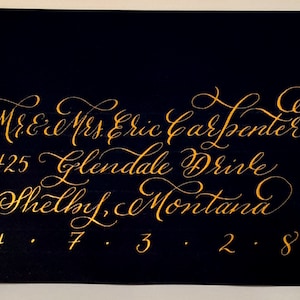 Mr. & Mrs. Eric Carpenter
425 Glendale Drive
Shelby, Montana
4 · 7 · 3 · 2 · 8